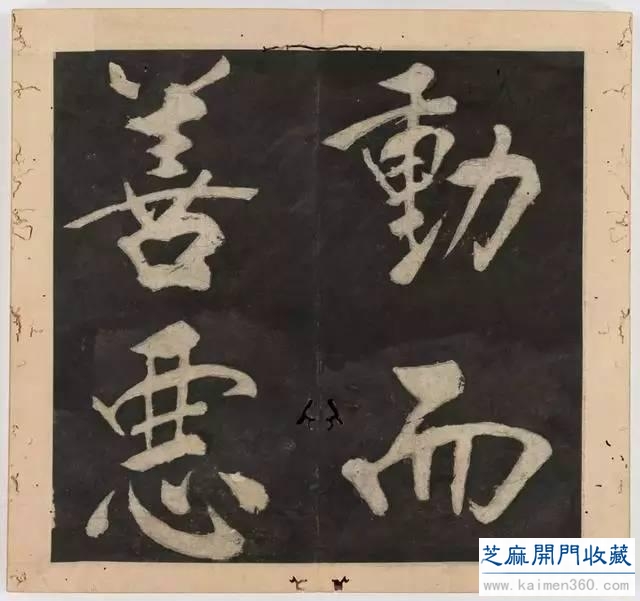 動而
善悪
芝麻開門收藏
www.kaimen360.com